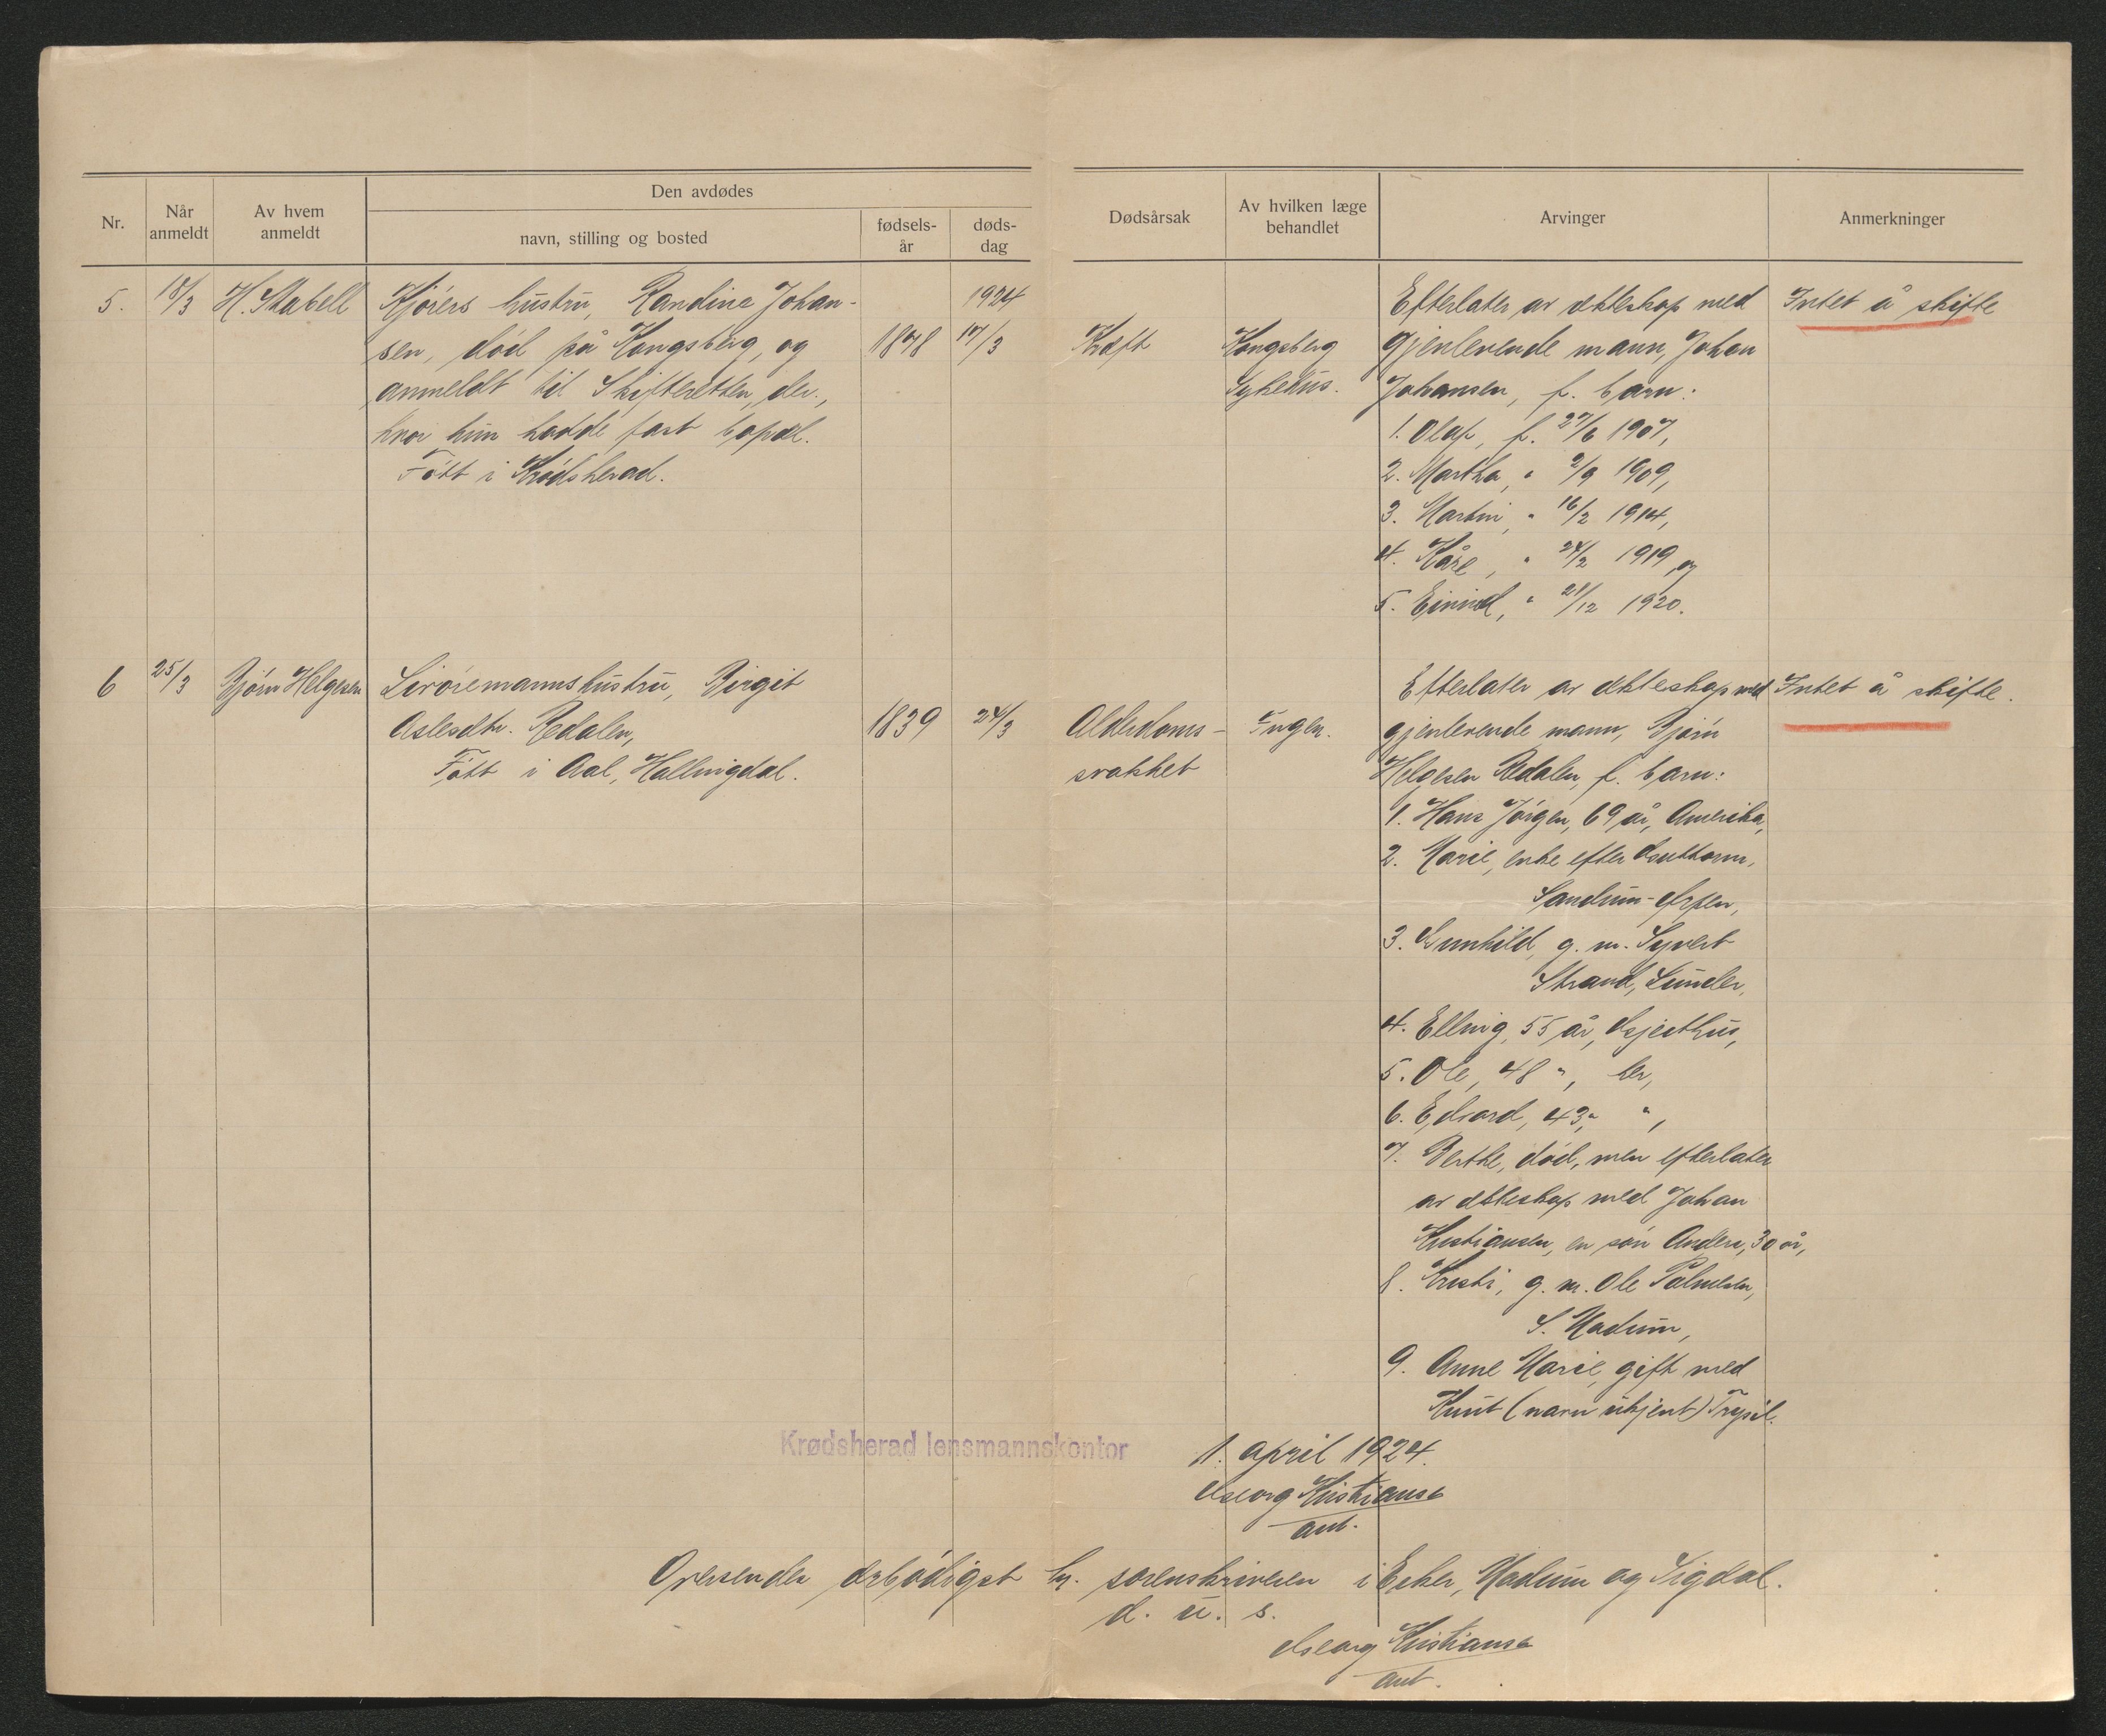 Nr.
Når anmeldt
Av hvem anmeldt
Den avdødes
navn, stilling og bosted
fødsels-år
døds-dag
Dødsårsak
Av hvilken læge behandlet
Arvinger
Anmerkninger
5. 18/3 H. Stabell
Kjørers hustru, Randine Johan-
sen, død på Kongsberg, og
anmeldt til Skifteretten, der.,
hvor hun hadde fast bopæl.
Født i Krødsherad.
1878
1924
17/3
Kræft
Kongsberg
Sykehus.
Efterlater av ekteskap med
gjenlevende mann, Johan
Johansen, f. barn:
1. Olaf, f. 27/6 1907,
2. Martha, " 2/9 1909,
3. Martin, " 16/2 1914,
4. Kåre, " 24/2 1919 og
5. Eivind, " 21/12 1920.
Intet å skifte
6 25/3 Bjørn Helgesen
Livøremannshustru, Birgit
Aslesdtr. Redalen,
Født i Aal, Hallingdal.
1839
24/3
Alderdoms-
svakhet
Ingen.
Efterlater av ekteskap med
gjenlevende mann, Bjørn
Helgesen Redalen, f. barn:
1. Hans Jørgen, 69 år, Amerika,
2. Marie, enke efter Guttorm,
Sandum-
3. Gunhild, g. m. Syvert
Strand, Lunder,
4. Elling, 55 år, Gjesthus,
5. Ole, 48 ", her,
6. Edvard, 43 ", ",
7. Berthe, død, men efterlater
av ekteskap med Johan
Kristiansen, en søn Anders, 30 år,
8. Kristi, g. m. Ole Palmesen,
S. Modum,
9. Anne Marie, gift med
Knut (navn ukjent) Trysil.
Intet å skifte.
Krødsherad lensmannskontor
1. april 1924.
Georg Kristianse
aut.
Oversendes ærbødigst hr. sorenskriveren i Eeker, Modum og Sigdal.
d. u. s.
Georg Kristianse
aut.